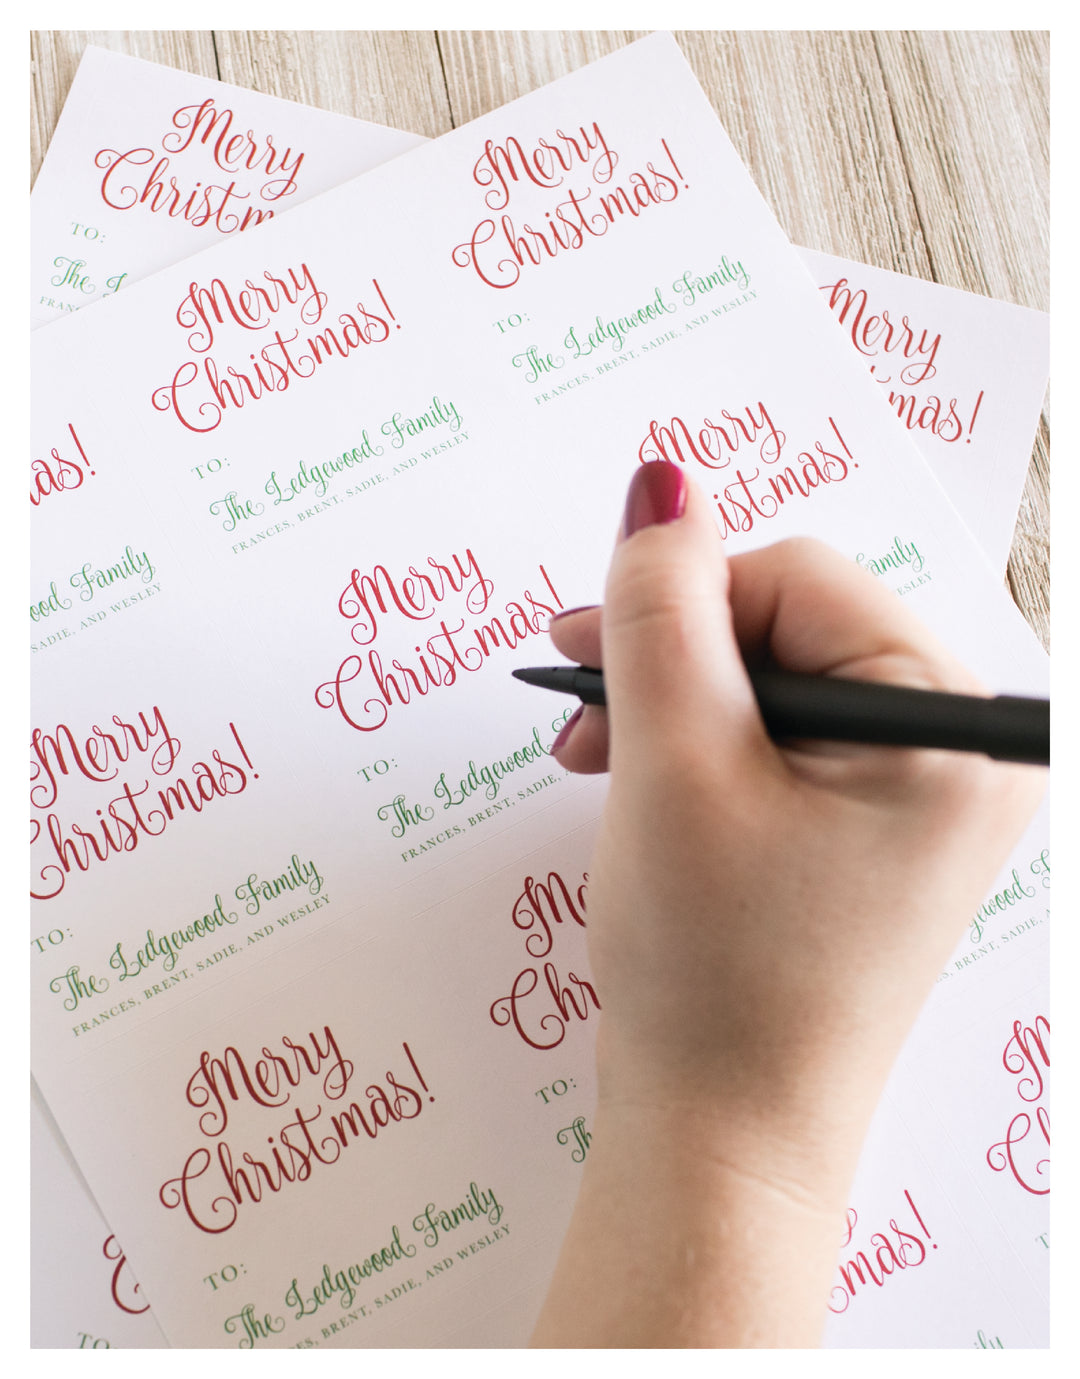 Merry
Christm
TO:
The L
FRAN
Merry
Christmas!
TO:
The Ledgewood Family
FRANCES, BRENT, SADIE, AND WESLEY
Merry
Christmas!
TO:
The Ledgewood Family
FRANCES, BRENT, SADIE, AND WESLEY
Merry
mas!
as!
ood Family
SADIE, AND WESLEY
Merry
istmas!
amily
WESLEY
Merry
Christmas!
TO:
The Ledgewood
FRANCES, BRENT, SADIE,
Merry
Christmas!
TO:
The Ledgewood Family
FRANCES, BRENT, SADIE, AND WESLEY
Me
Chr
TO:
The
gewood
BRENT, SADIE,
Merry
Christmas!
TO:
The Ledgewood Family
FRANCES, BRENT, SADIE, AND WESLEY
M
C
T
mas!
mily
C
TO: